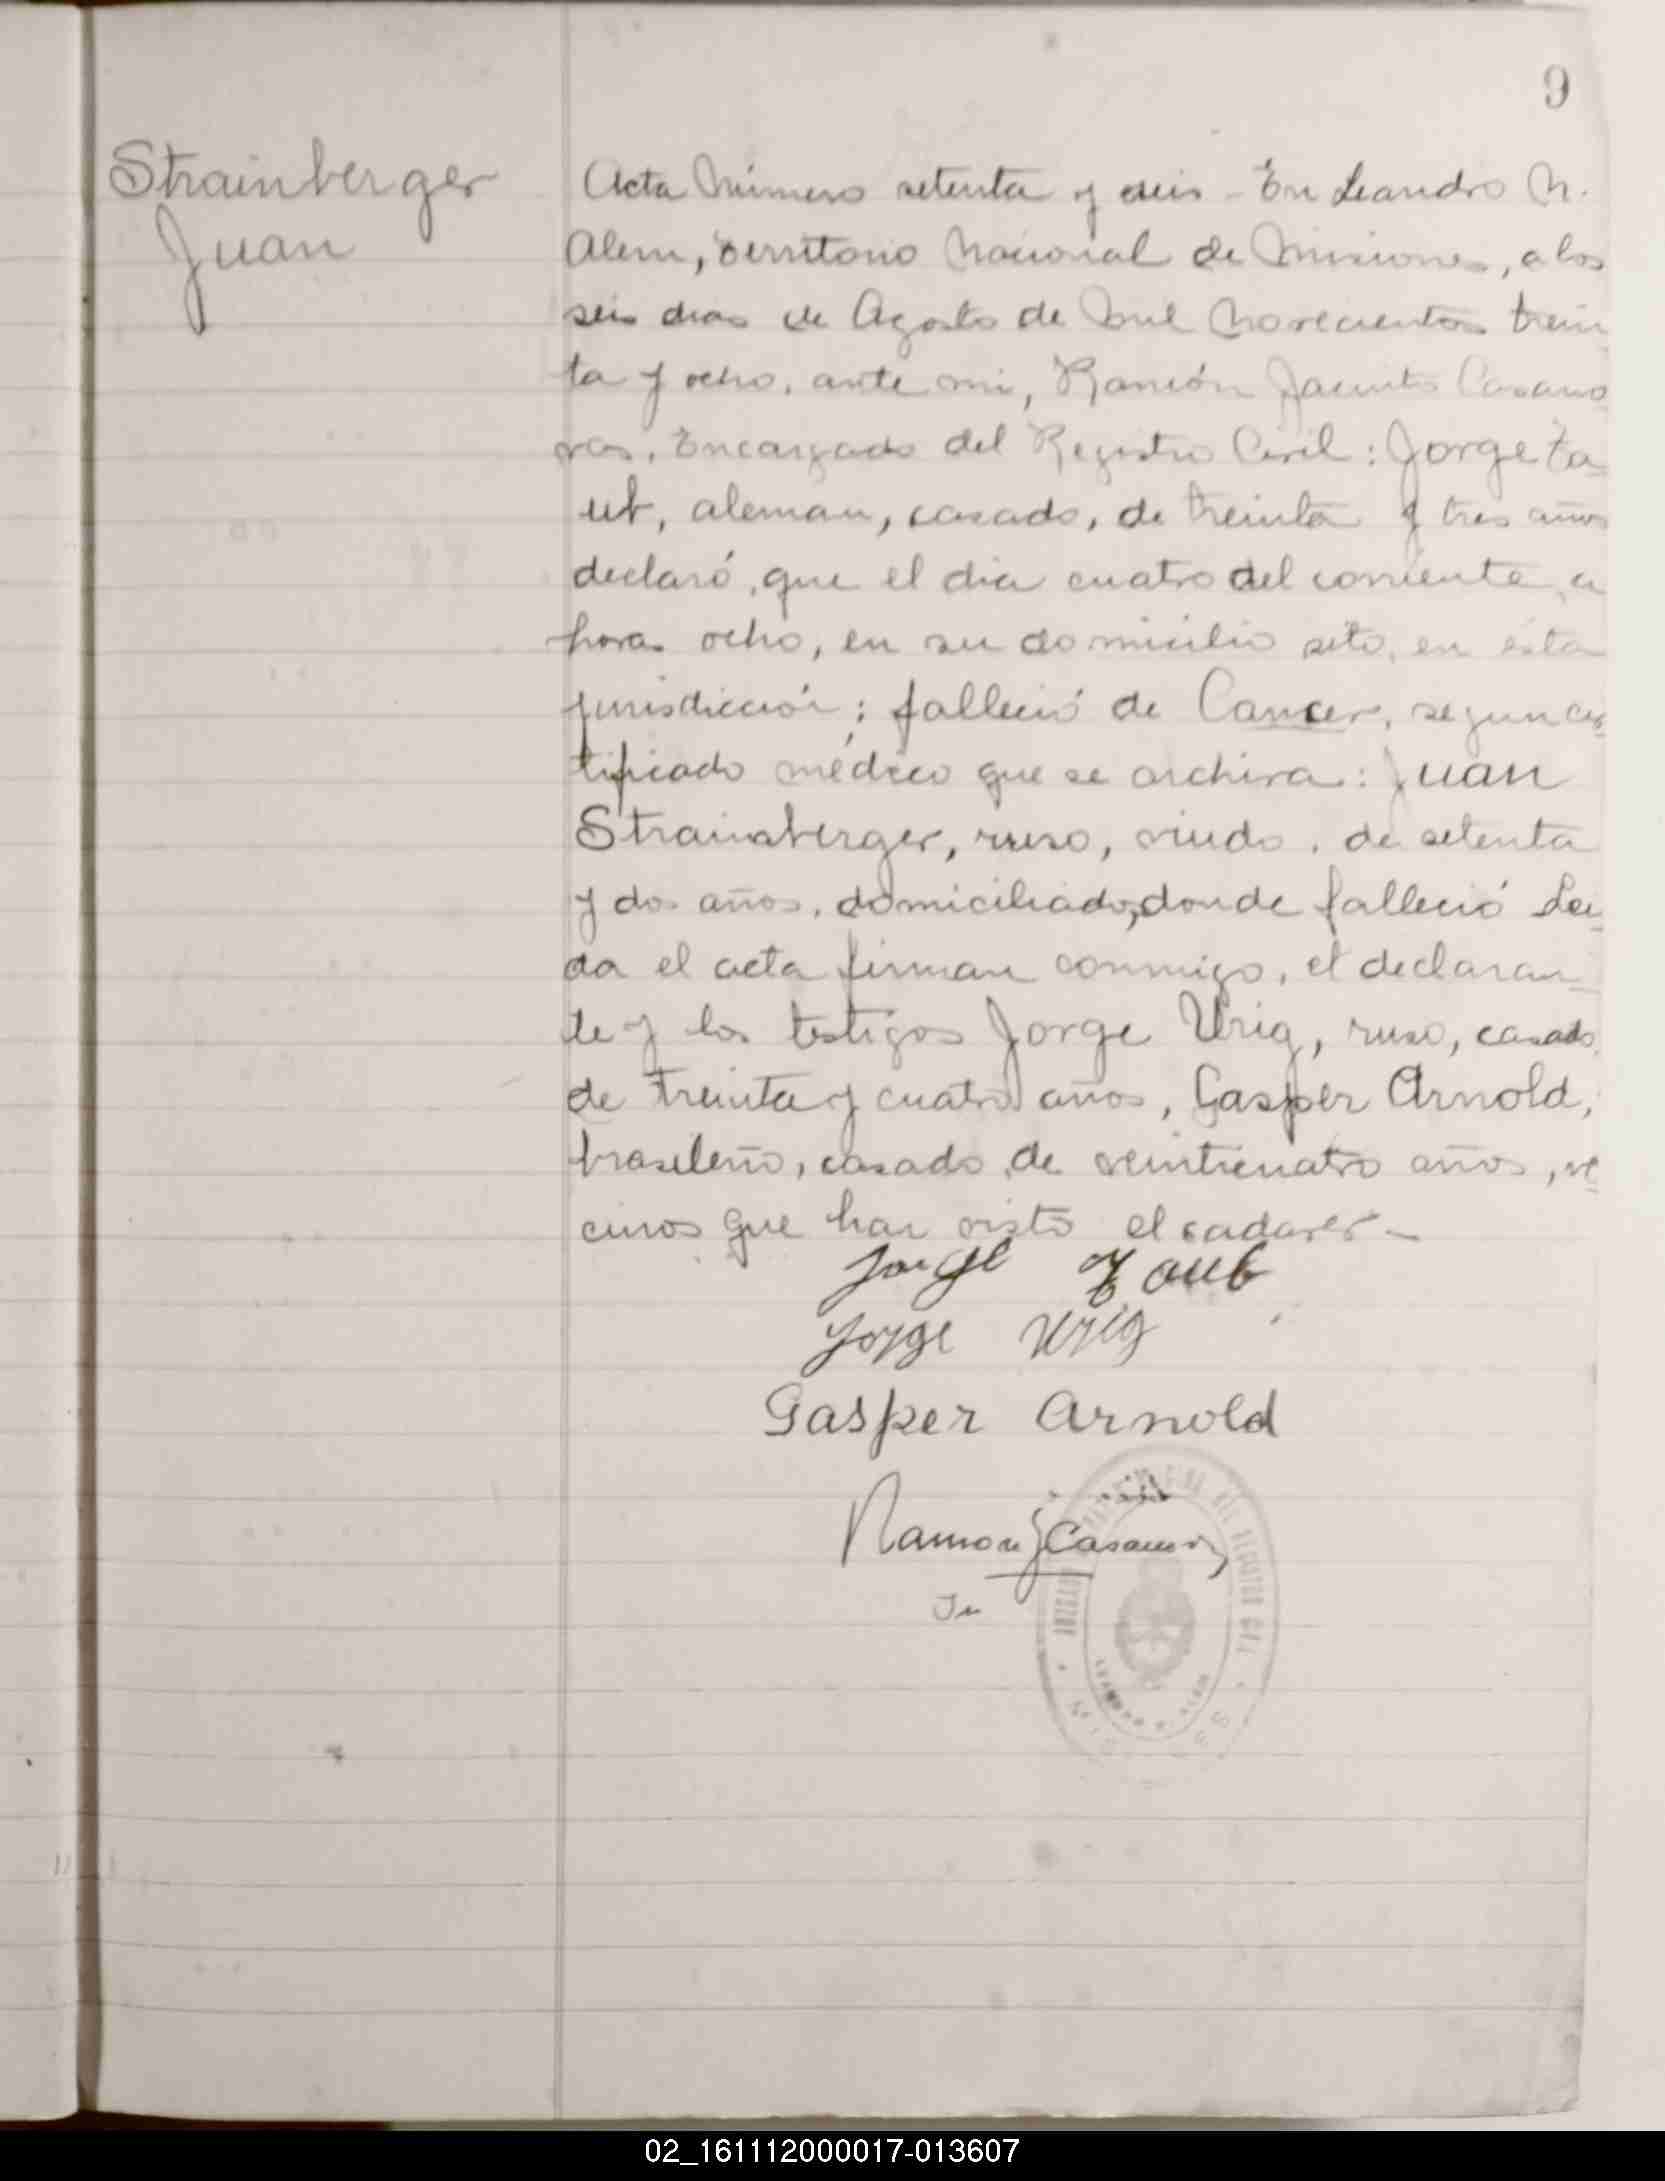 9
Strainberger
Juan
Acta Número setenta y seis - En Leandro N.
Alem, Territorio Nacional de Misiones, a los
seis dias de Agosto de mil novecientos trein
ta y ocho, ante mi, Ramón Jacinto Casano
vas, Encargado del Registro Civil: Jorge Ta
ub, aleman, casado, de treinta y tres años
declaró, que el dia cuatro del corriente, a
horas ocho, en su domicilio sito, en ésta
jurisdicción; falleció de Cancer, segun cer
tificado médico que se archiva: Juan
Strainsberger, ruso, viudo, de setenta
y dos años, domiciliado, donde falleció Lei
da el acta firman conmigo, el declaran
te y los testigos Jorge Urig, ruso, casado,
de treinta y cuatro años, Gasper Arnold,
brasileño, casado, de veinticuatro años, ve
cinos que han visto el cadaver -
Jorge Taub
Jorge Urig
Gasper Arnold
Ramon J Casanova
02_161112000017-013607